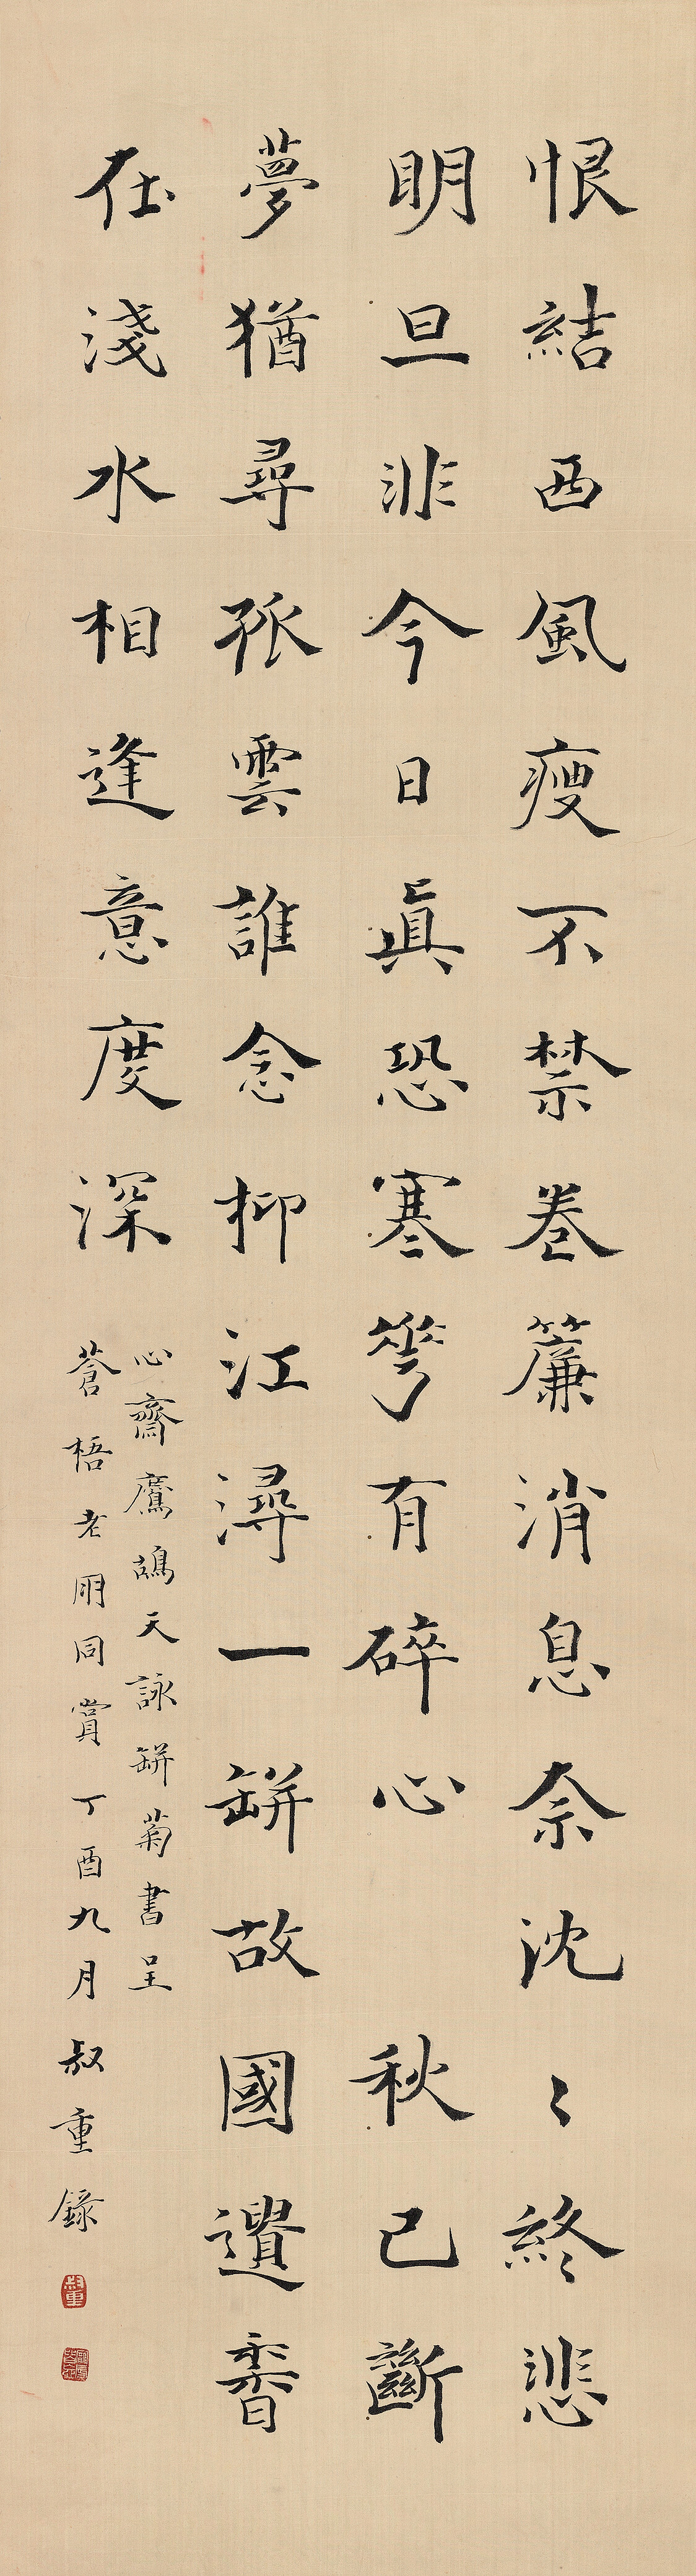 恨結西風瘦不禁卷簾消息柰沈〻終悲
明旦非今日眞恐寒花有碎心 秋已斷
夢猶尋孤雲誰念抑江潯一缾故國遺香
在淺水相逢意度深
心齋鷓鴣天詠缾菊書呈
蒼梧老朋同賞丁酉九月叔重錄
叔重